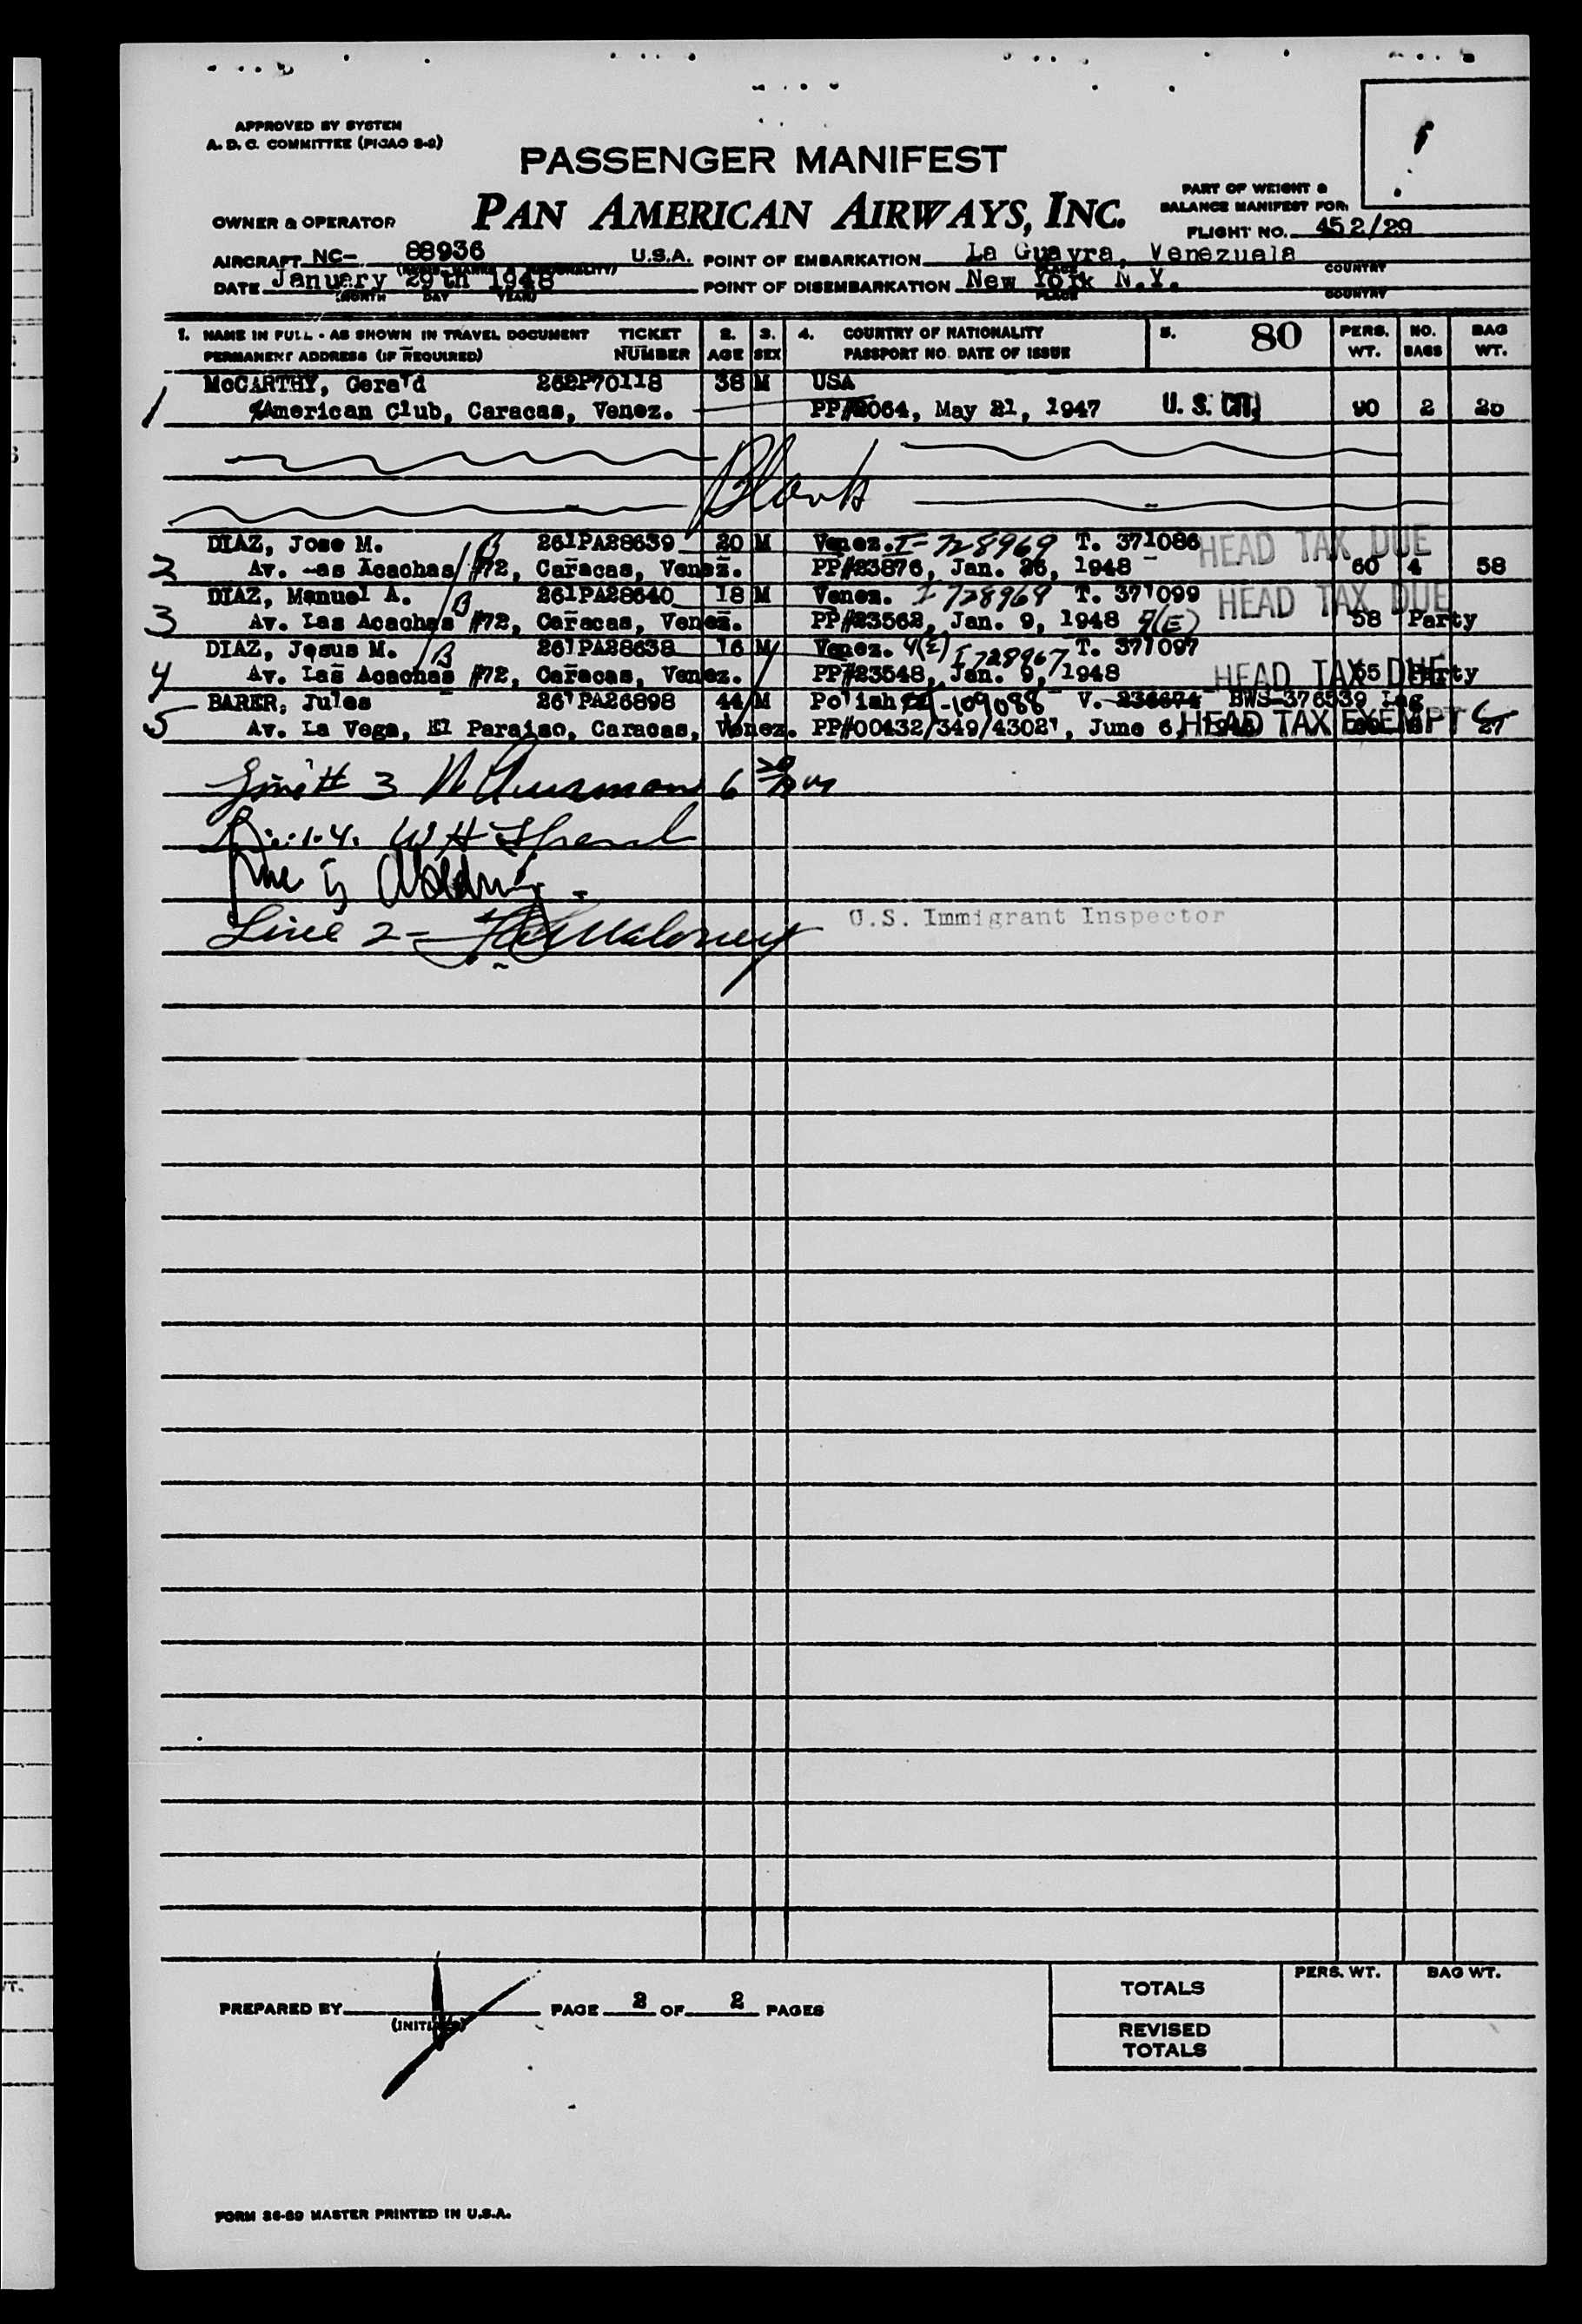 APPROVED BY SYSTEM
A. D. C. COMMITTEE (PICAO S-2)
PASSENGER MANIFEST
PAN AMERICAN AIRWAYS, INC.
OWNER & OPERATOR
PART OF WEIGHT &
BALANCE MANIFEST FOR:
FLIGHT NO. 452/29
AIRCRAFT NC- 88936 U.S.A. POINT OF EMBARKATION La Guayra, Venezuela
PLACE COUNTRY
DATE January 29th 1948 POINT OF DISEMBARKATION New York N.Y.
(MONTH DAY YEAR) PLACE COUNTRY
1. NAME IN FULL - AS SHOWN IN TRAVEL DOCUMENT TICKET 2. 3. 4. COUNTRY OF NATIONALITY 5. 80 PERS. NO. BAG
PERMANENT ADDRESS (IF REQUIRED) NUMBER AGE SEX PASSPORT NO. DATE OF ISSUE WT. BAGS WT.
McCARTHY, Gerald 262P70118 38 M USA
1 %American Club, Caracas, Venez. PP#2064, May 21, 1947 U. S. CIT. 90 2
Blank
DIAZ, Jose M. B 261PA28639 20 M Venez. I-728969 T. 371086 HEAD TAX DUE
2 Av. -as Acachas #72, Caracas, Venez. PP#23876, Jan. 26, 1948 60 4 58
DIAZ, Manuel A. B 261PA28640 18 M Venez. I 728968 T. 371099 HEAD TAX DUE
3 Av. Las Acachas #72, Caracas, Venez. PP#23562, Jan. 9, 1948 4(E) 58 Party
DIAZ, Jesus M. B 261PA28638 16 M Venez. 4(E) I 728967 T. 371097
4 Av. Las Acachas #72, Caracas, Venez. PP#23548, Jan. 9, 1948 HEAD TAX DUE 55 Party
BARER, Jules 261PA26898 44 M Polish -109088 V. 236674 BWS-376539
5 Av. La Vega, El Paraiso, Caracas, Venez. PP#00432/349/43021, June 6, HEAD TAX EXEMPT 27
3
W H
Line 2-
U.S. Immigrant Inspector
PREPARED BY PAGE 2 OF 2 PAGES
(INITIALS)
TOTALS PERS. WT. BAG WT.
REVISED
TOTALS
FORM 36-69 MASTER PRINTED IN U.S.A.